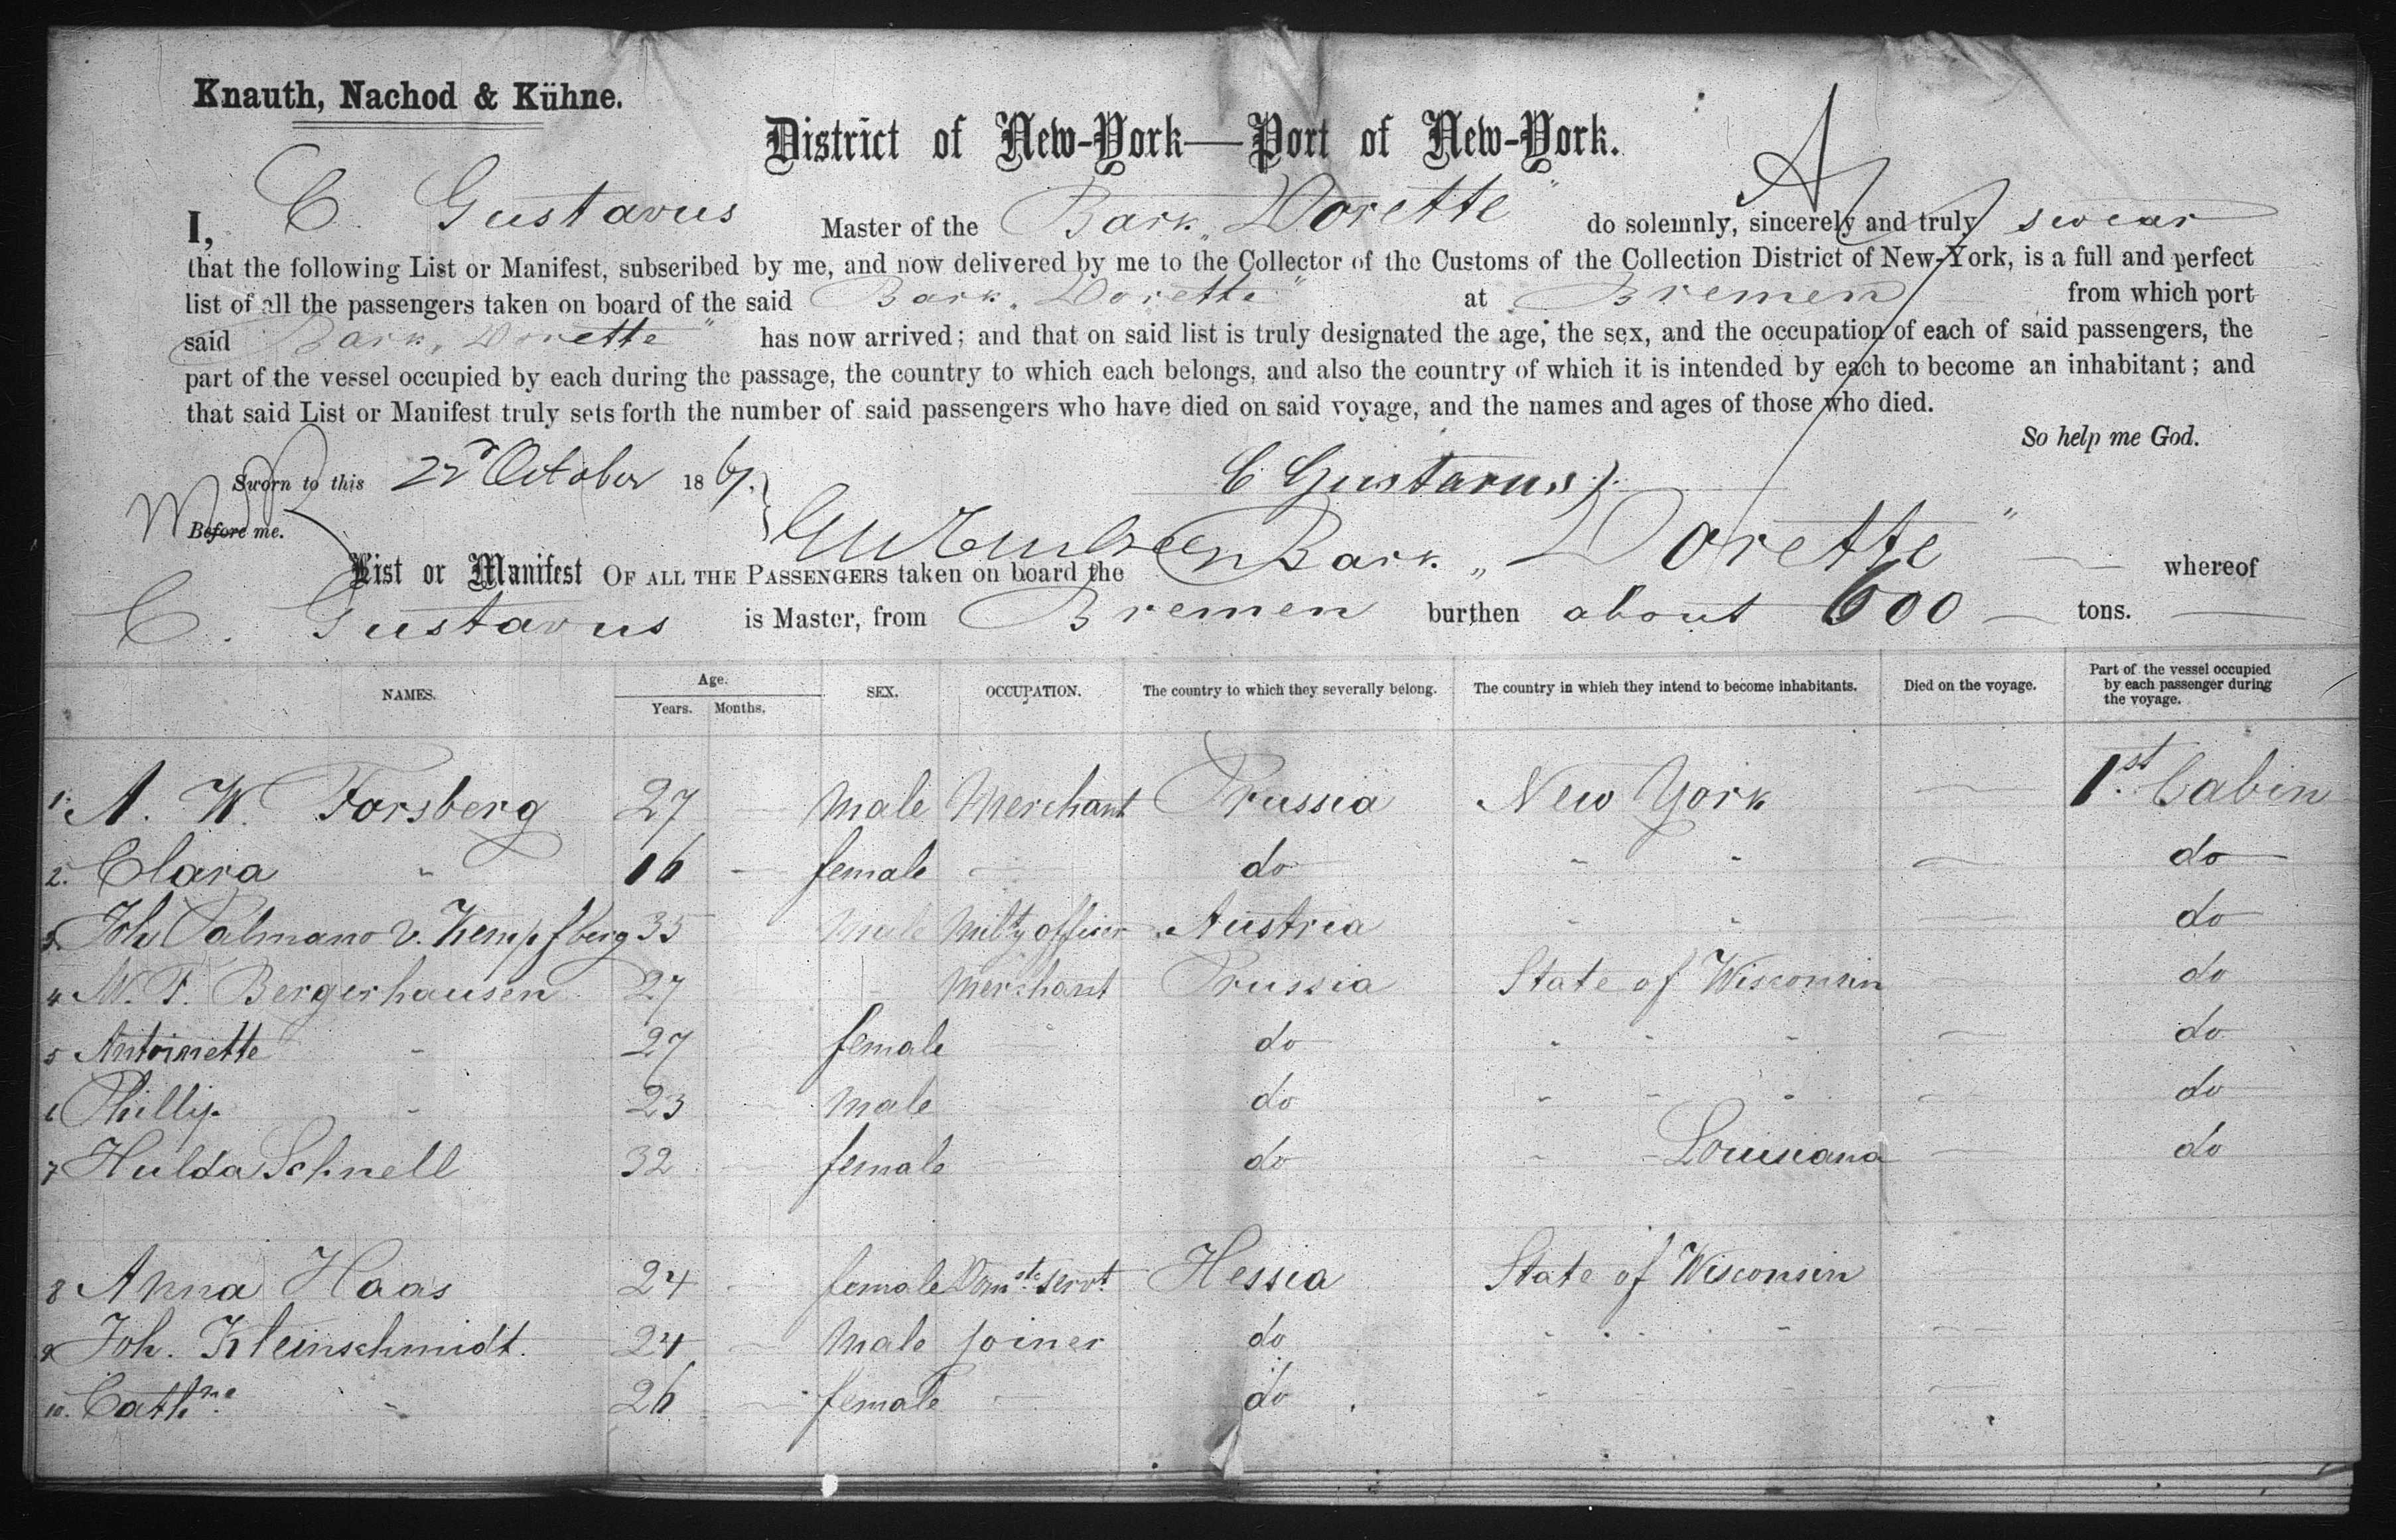 Knauth, Nachod & Kühne.
District of New-York—Port of New-York.
I, C. Gustavus Master of the Bark „Dorette" do solemnly, sincerely and truly swear
that the following List or Manifest, subscribed by me, and now delivered by me to the Collector of the Customs of the Collection District of New-York, is a full and perfect
list of all the passengers taken on board of the said Bark „Dorette" at Bremen from which port
said Bark „Dorette" has now arrived; and that on said list is truly designated the age, the sex, and the occupation of each of said passengers, the
part of the vessel occupied by each during the passage, the country to which each belongs, and also the country of which it is intended by each to become an inhabitant; and
that said List or Manifest truly sets forth the number of said passengers who have died on said voyage, and the names and ages of those who died.
So help me God.
Sworn to this 22d October 1867. C Gustavus
Before me.
List or Manifest OF ALL THE PASSENGERS taken on board the Bark „Dorette" whereof
C. Gustavus is Master, from Bremen burthen about 600 tons.
NAMES. Age. Years. Months. SEX. OCCUPATION. The country to which they severally belong. The country in which they intend to become inhabitants. Died on the voyage. Part of the vessel occupied by each passenger during the voyage.
1. A. W. Forsberg 27 — male Merchant Prussia New York — 1st. Cabin
2. Clara " 16 — female — do " " — do
3. Joh Palmano v. Kempfberg 35 male Milty officer Austria " " — do
4 W. F. Bergerhausen 27 " Merchant Prussia State of Wisconsin — do
5 Antoinette " 27 — female — do " " " — do
6 Phillip " 23 — male — do " " " — do
7 Hulda Schnell 32 — female — do " " Louisiana — do
8 Anna Haas 24 — female Domstc. servt. Hessia State of Wisconsin
9 Joh. Kleinschmidt. 24 — male joiner do " " " —
10. Cathne " 26 — female — do " " " —